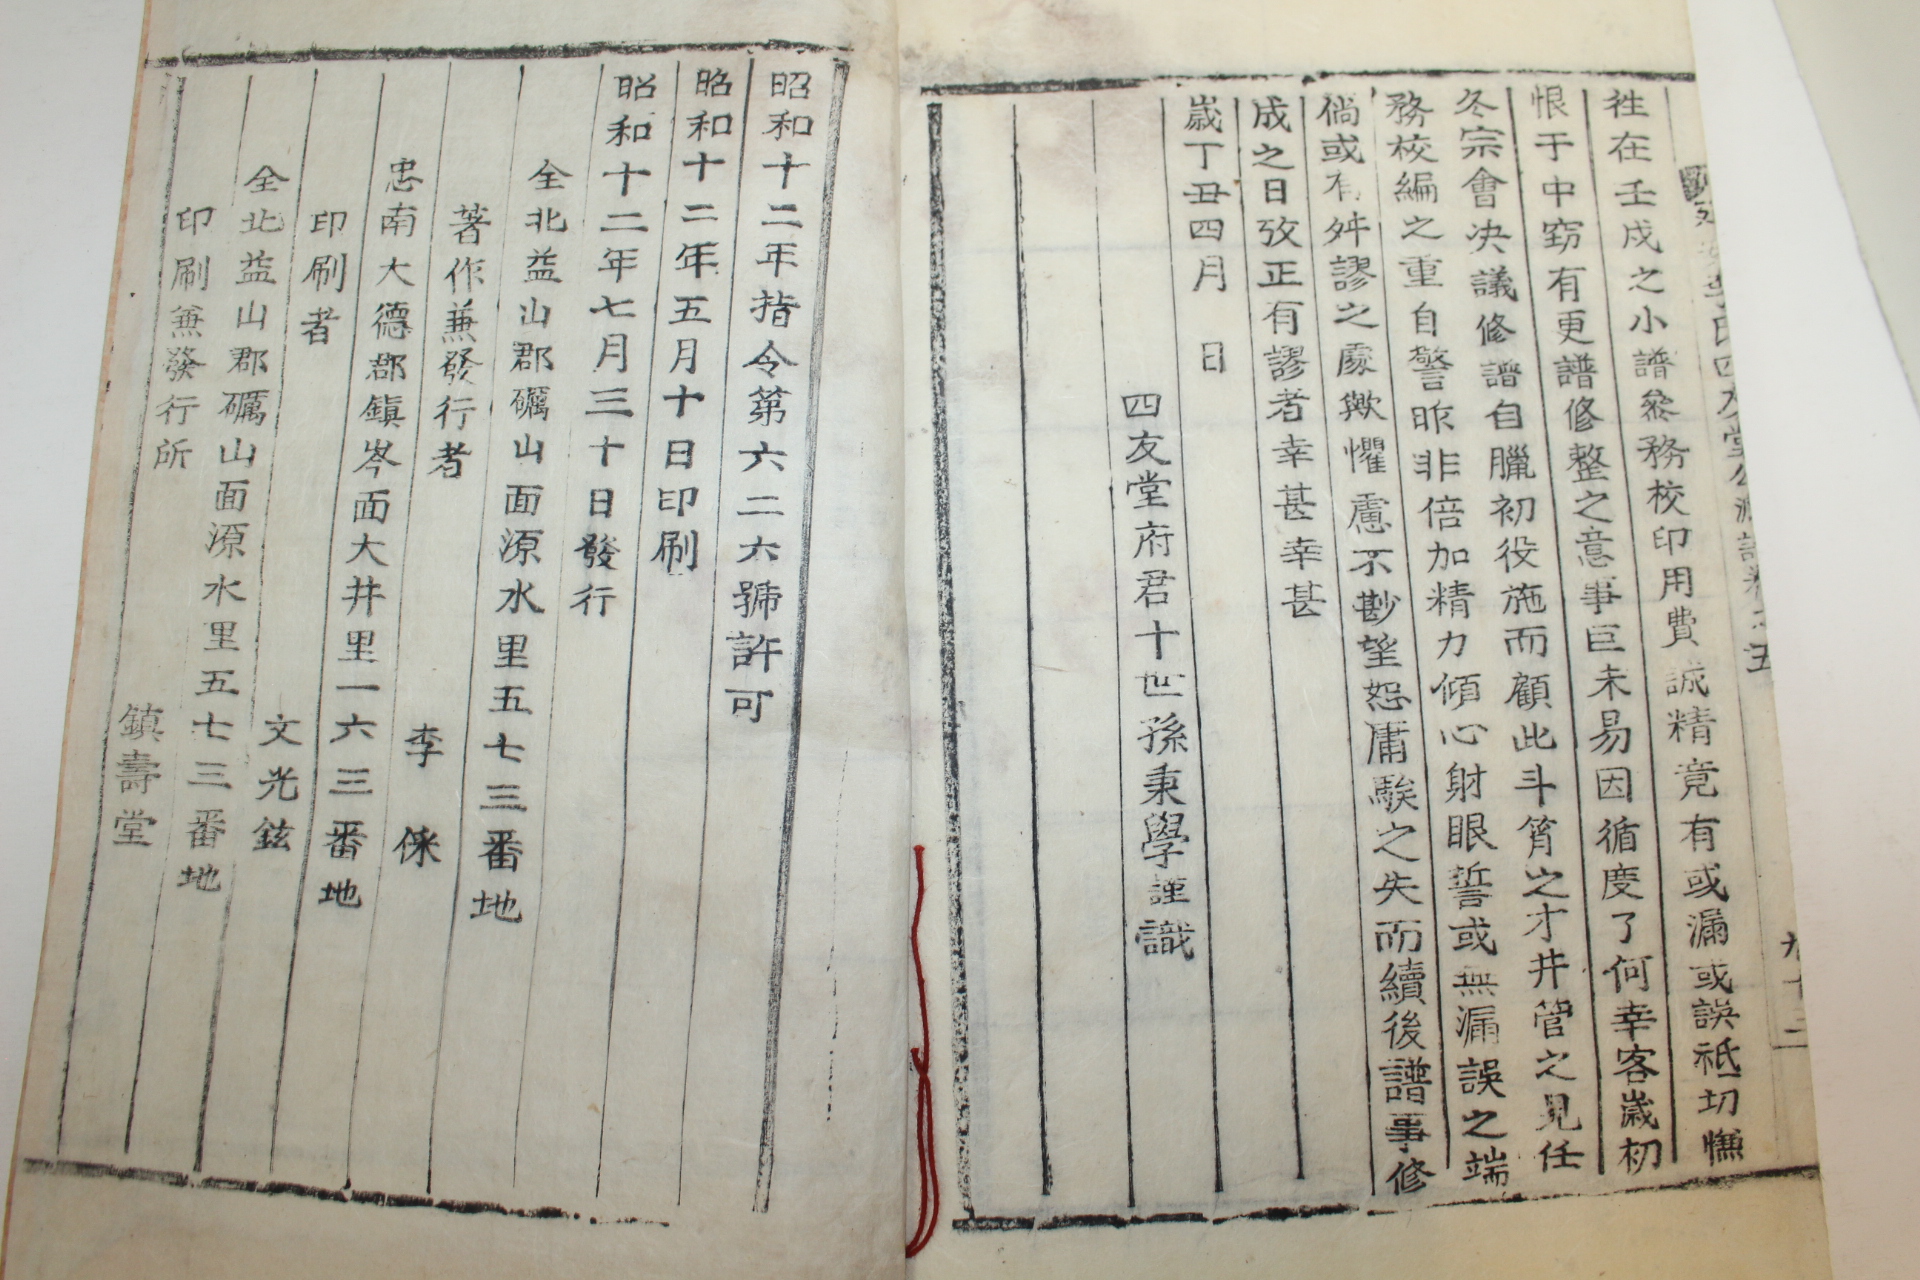 徃在壬戌之小譜叅務校印用費誠精竟有或漏或誤祗切憮
恨于中窃有更譜修整之意事巨未易因循度了何幸客歲初
冬宗會决議修譜自臘初役施而顧此斗筲之才井管之見任
務校編之重自警昨非倍加精力傾心財眼誓或無漏誤之端
倘或有舛謬之處歟懼慮不尠望恕庸騃之失而續後譜事修
成之日攷正有謬者幸甚幸甚
歲丁丑四月 日
四友堂府君十世孫秉學謹識
李氏四友堂公派譜卷之五
九十三
昭和十二年指令第六二六號許可
昭和十二年五月十日印刷
昭和十二年七月三十日發行
全北益山郡礪山面源水里五七三番地
著作兼發行者 李倸
忠南大德郡鎭岑面大井里一六三番地
印刷者 文光鉉
全北益山郡礪山面源水里五七三番地
印刷兼發行所 鎭壽堂